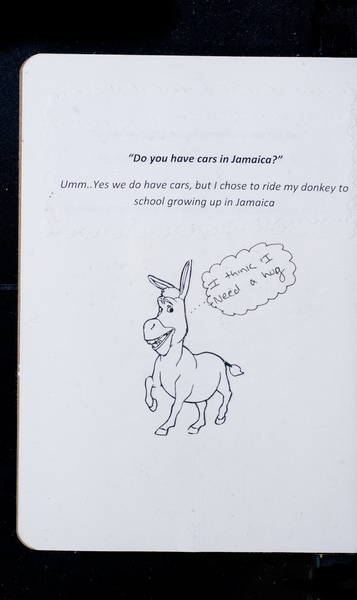 “Do you have cars in Jamaica?”
Umm..Yes we do have cars, but I chose to ride my donkey to
school growing up in Jamaica
I think I
Need a hug